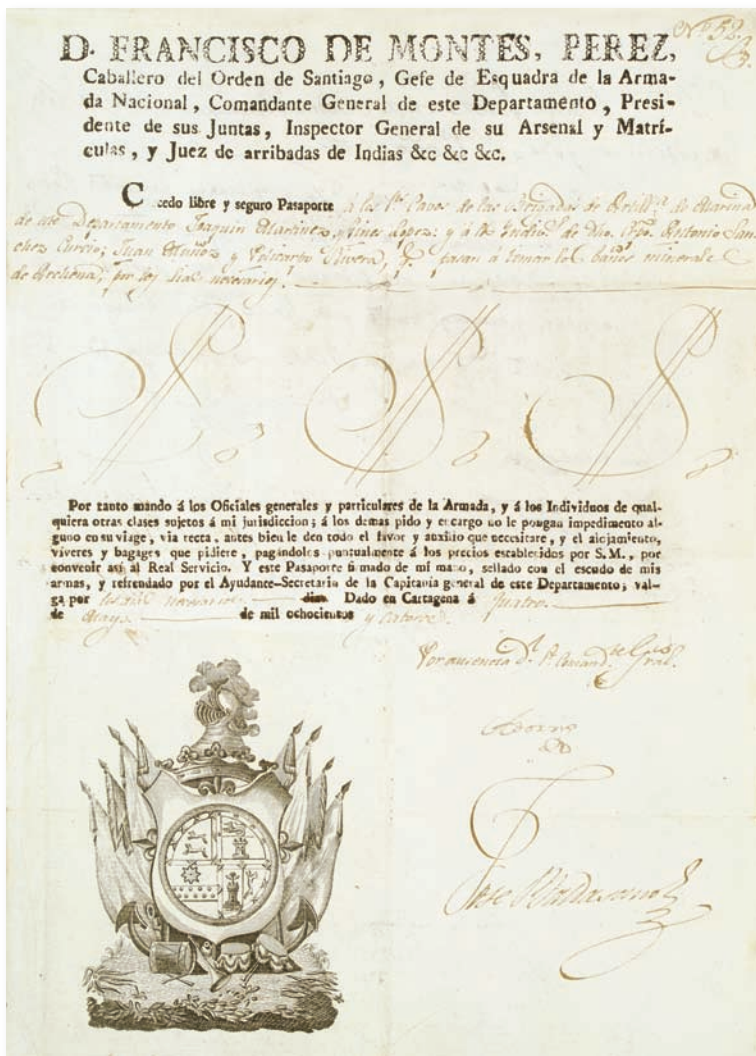 Nº 52.
D. FRANCISCO DE MONTES, PEREZ,
Caballero del Orden de Santiago, Gefe de Esquadra de la Arma-
da Nacional, Comandante General de este Departamento, Presi-
dente de sus Juntas, Inspector General de su Arsenal y Matrí-
culas, y Juez de arribadas de Indias &c &c &c.
C cedo libre y seguro Pasaporte á los Cavos de las Brigadas de Artillª de Marina
de este Departamento Joaquin Martinez, y Gines Lopez: y á los Individs de Antonio San-
chez Juan Muñoz y Rivera, pasan á tomar los baños minerales
de Archena; por los dias necesarios
Por tanto mando á los Oficiales generales y particulares de la Armada, y á los Individuos de qual-
quiera otras clases sujetos á mi jurisdiccion; á los demas pido y encargo no le pongan impedimento al-
guno en su viage, via recta, antes bien le den todo el favor y auxilio que necesitare, y el alojamiento,
víveres y bagages que pidiere, pagándolos puntualmente á los precios establecidos por S.M., por
convenir así al Real Servicio. Y este Pasaporte firmado de mi mano, sellado con el escudo de mis
armas, y refrendado por el Ayudante-Secretario de la Capitanía general de este Departamento; val-
ga por los dias necesarios dias. Dado en Cartagena á quatro
de Mayo de mil ochocientos y catorce.
Por ausencia del Sr Comandte Gral.
Jose Baldasano